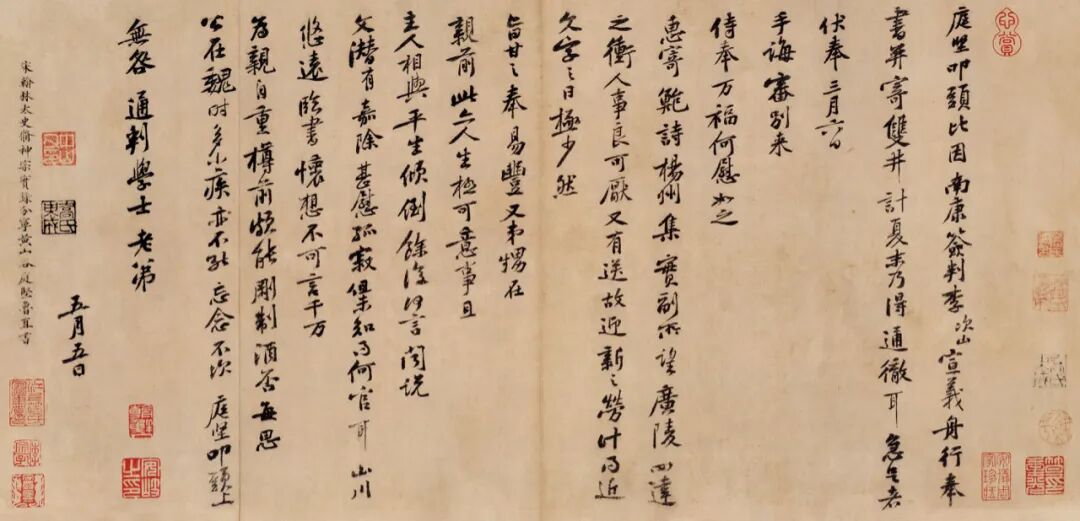 庭堅叩頭比因南康簽判李次山宣義舟行奉
書并寄雙井計夏末乃得通徹耳急足者
伏奉三月六日
手誨審別来
侍奉万福何慰如之
惠寄鮑詩楊州集實副所望廣陵四達
之衝人事良可厭又有送故迎新之勞計乃近
文字之日極少然
旨甘之奉易豐又弟甥在
親前此亦人生極可意事且
主人相與平生傾倒餘復何言聞說
文潛有嘉除甚慰孤寂知乃何官耳山川
悠遠臨書懷想不可言千万
為親自重樽前頗能剛制酒否每思
公在魏時多小疾亦不能忘念不次庭堅叩頭上
無咎通判學士老弟
五月五日
宋翰林太史脩神宗實錄分寧黃山谷庭堅魯直書